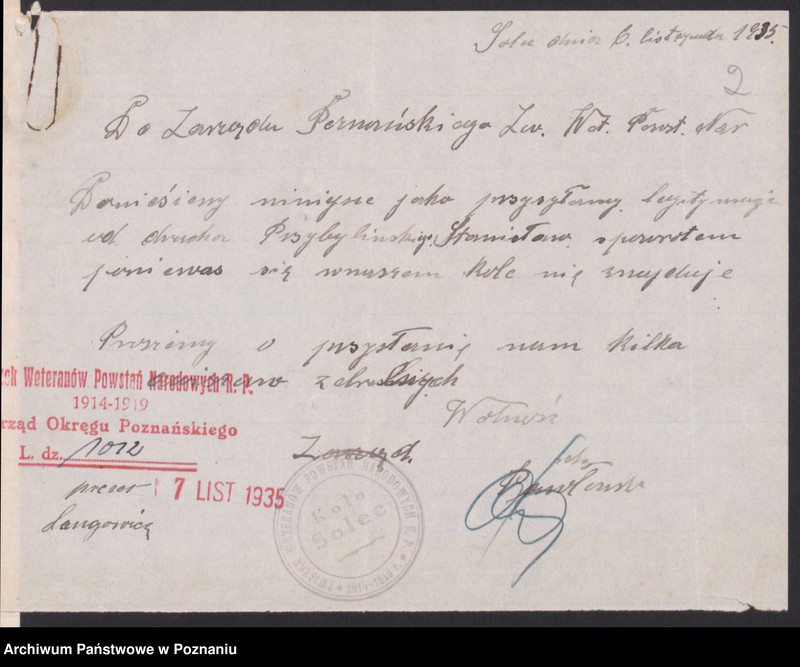 Solec dnia 6. listopada 1935.
2
Do Zarządu Poznańskiego Zw. Wet. Powst. Nar
Donieśiemy niniejsze jako przysyłamy legitymacje
od druha Przybylinskiego Stanisław spowrotem
poniewas się wnaszem kole nię znajduje
Prosiemy o przysłanię nam kilka
zek Weteranów Powstań Narodowych R. P.
1914-1919
rząd Okręgu Poznańskiego
L. dz. 1012
Wolność
Zarząd.
7 LIST 1935
prezes
Langowicz
sekr
ZWIĄZEK WETERANÓW POWSTAŃ NARODOWYCH R. P. * 1914-1919 *
Koło
Solec
Archiwum Państwowe w Poznaniu